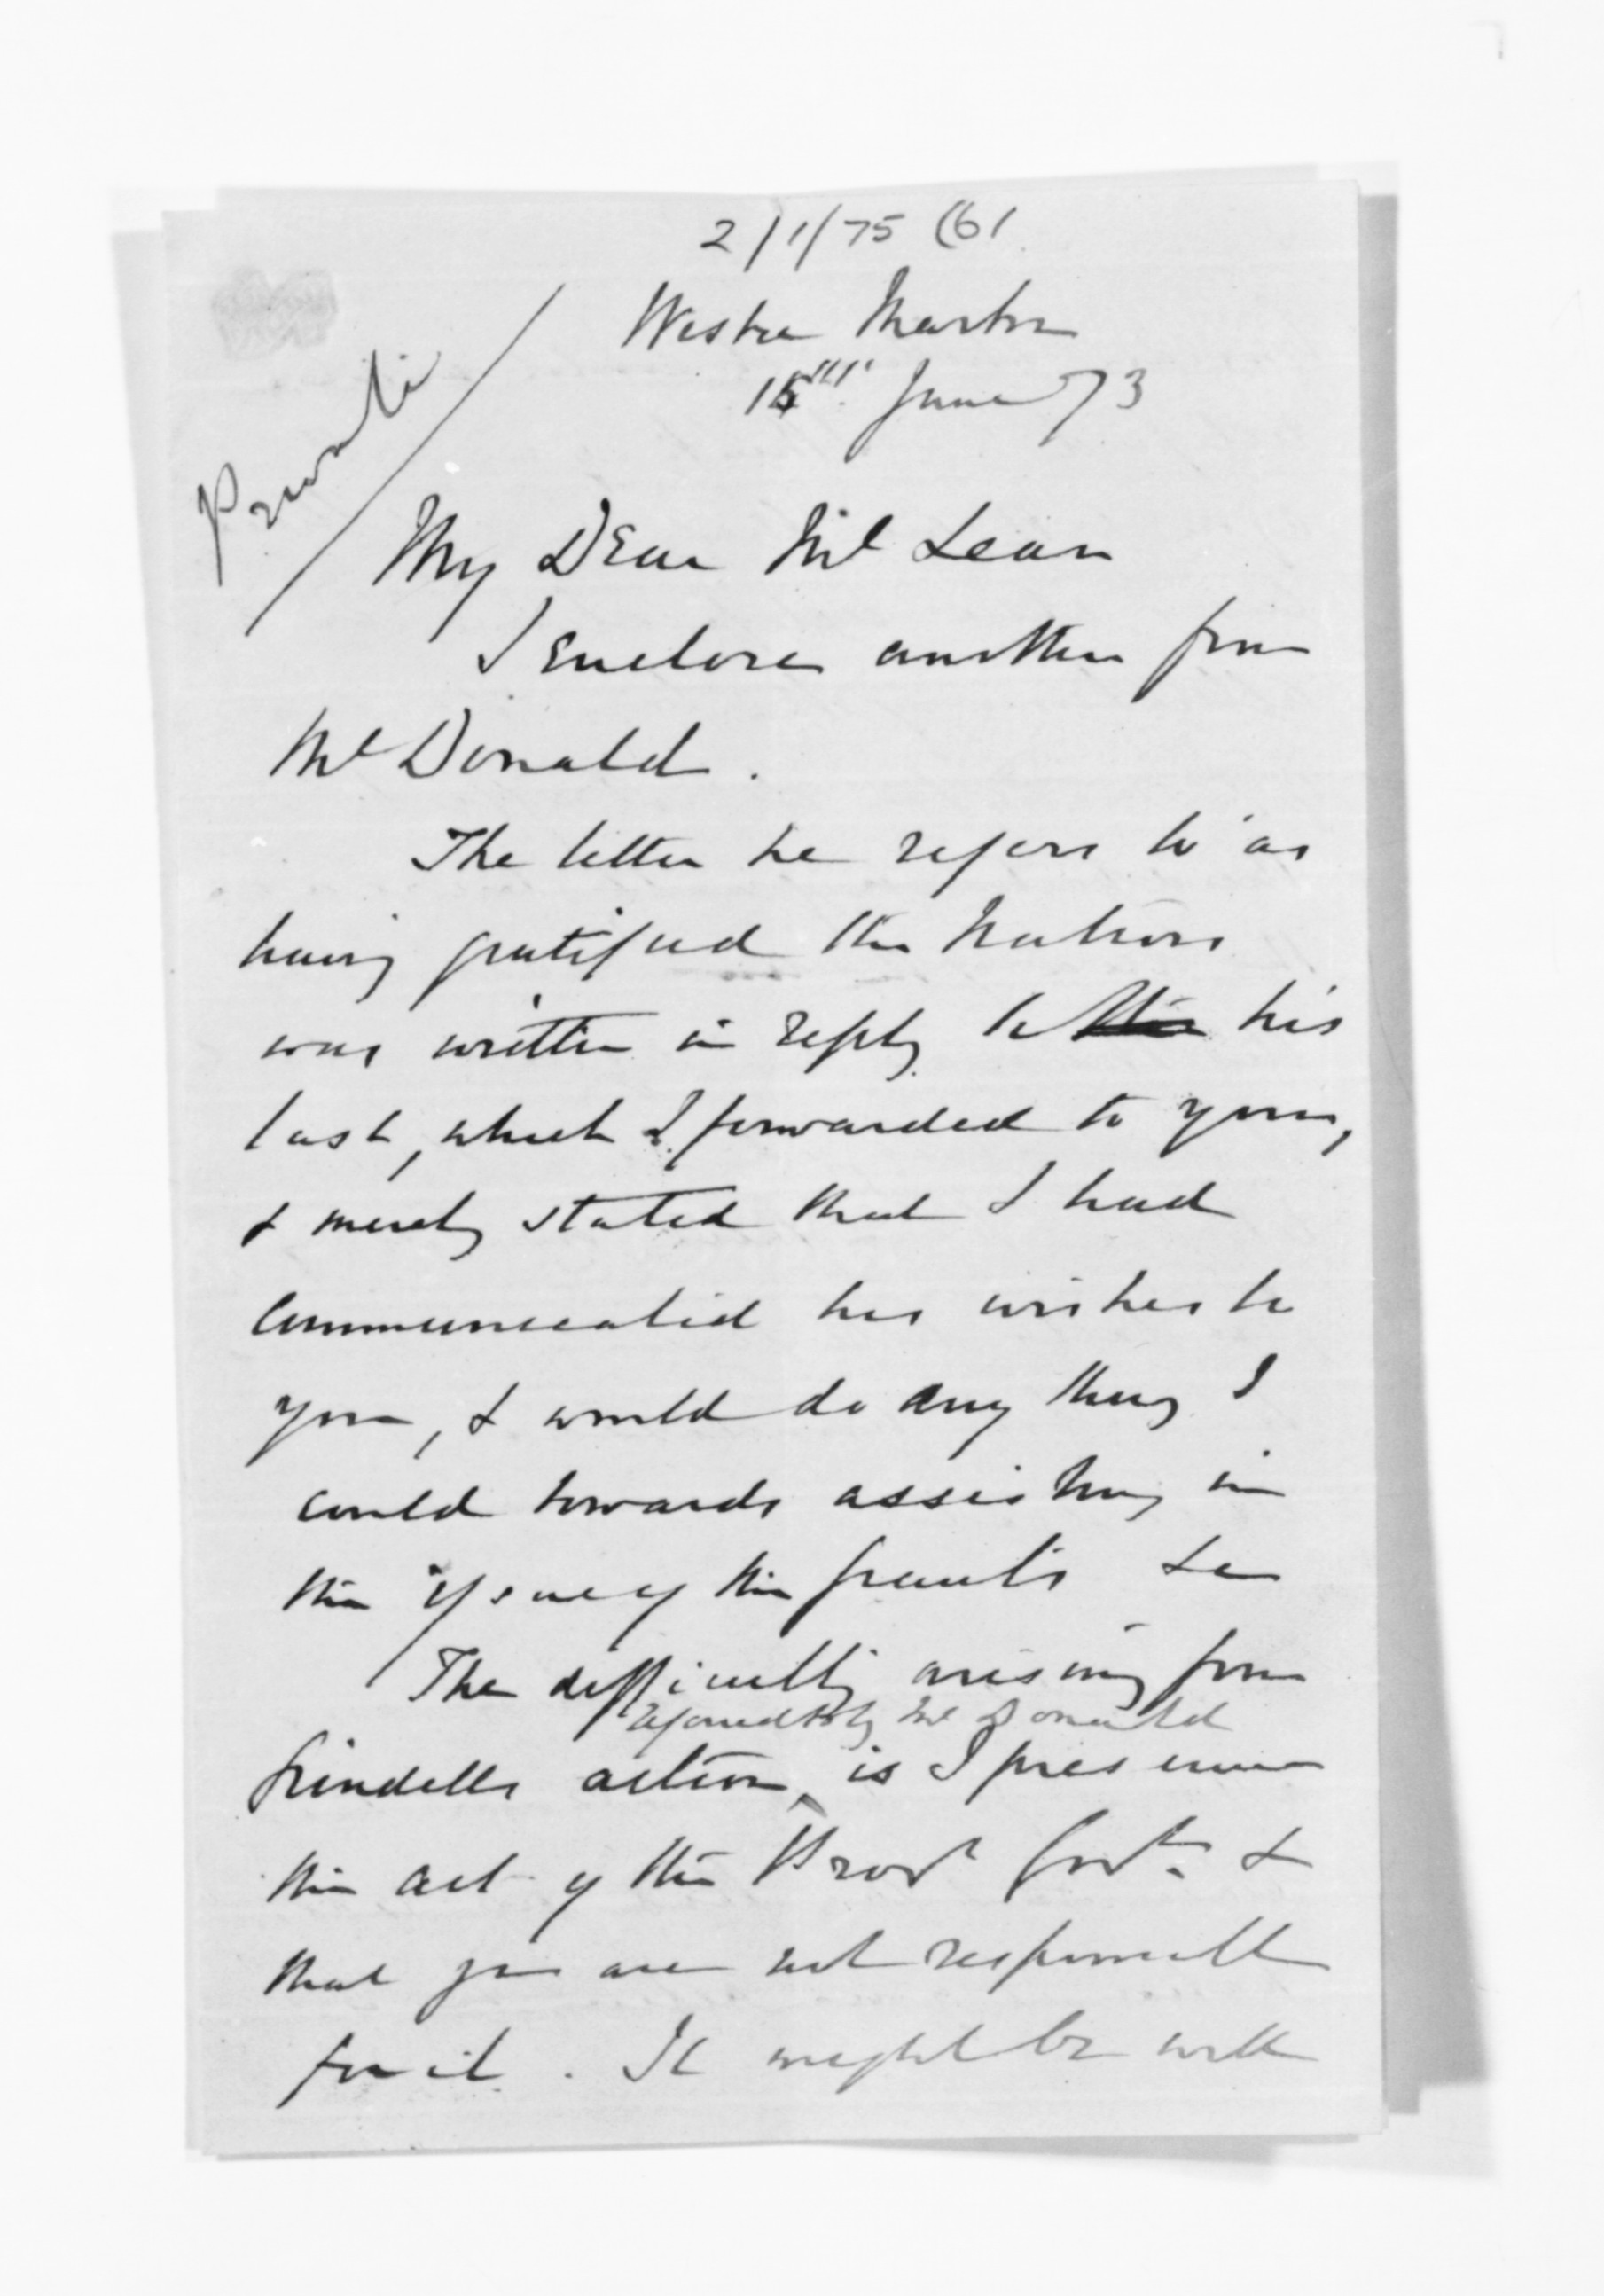 2/1/75 (61
Private
Westre Marton
15th June 73
My Dear McLean
I enclose another from
McDonald.
The letter he refers to as
having gratified the Natives
was written in reply to his
last, which I forwarded to you,
& merely stated that I had
communicated his wishes to
you, & would do any thing I
could towards assisting in
the issue of the grants &c
The difficulty arising from
referred to by McDonald
action, is I presume
the act of the Provl Govt. &
that you are not responsible
for it. It might be well